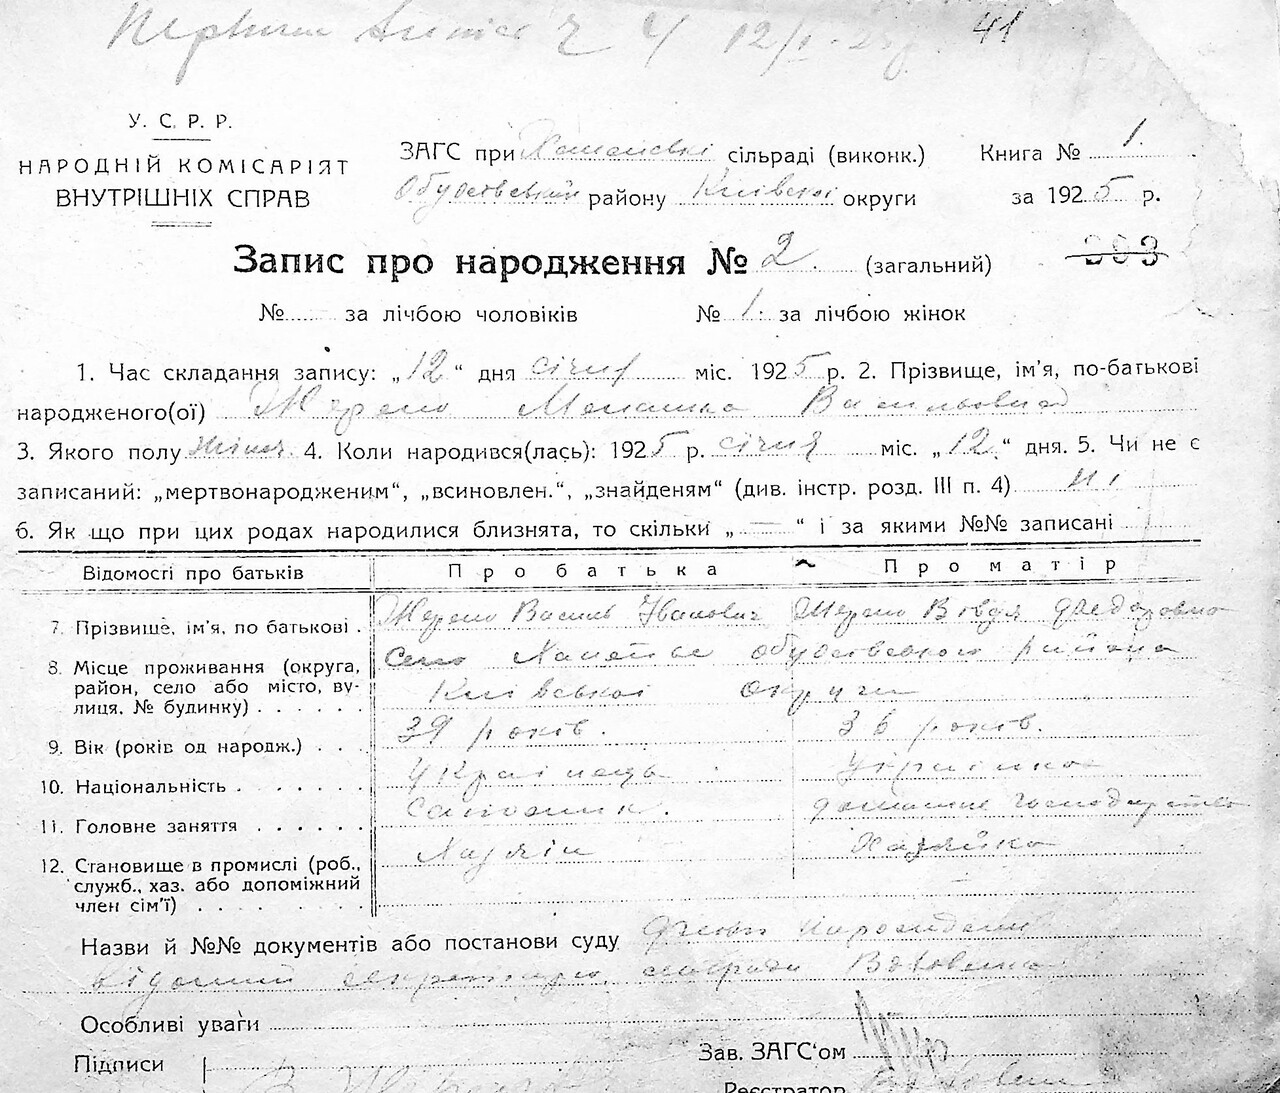 12/I-25 р. 41
У. С. Р. Р.
НАРОДНІЙ КОМІСАРІЯТ
ВНУТРІШНІХ СПРАВ
ЗАГС при сільраді (виконк.) Книга № 1.
району Київської округи за 1925 р.
Запис про народження № 2. (загальний) 203
№ за лічбою чоловіків № 1. за лічбою жінок
1. Час складання запису: „12“ дня січня міс. 1925 р. 2. Прізвище, ім'я, по-батькові
народженого(ої) Меланка Васильовна
3. Якого полу жіноч. 4. Коли народився(лась): 1925 р. січня міс. „12.“ дня. 5. Чи не є
записаний: „мертвонародженим“, „всиновлен.“, „знайденям“ (див. інстр. розд. III п. 4) ні
6. Як що при цих родах народилися близнята, то скільки „—“ і за якими №№ записані
Відомості про батьків Про батька Про матір
7. Прізвище, ім'я, по батькові . Василь Іванович Федоровна
8. Місце проживання (округа, Село району
район, село або місто, ву- Київської округи
лиця, № будинку) . . . . . .
9. Вік (років од народж.) . . . 39 років. 36 років.
10. Національність . . . . . . . Українець Українка
11. Головне заняття . . . . . . домашнє господарство
12. Становище в промислі (роб., Хазяїн Хазяйка
служб., хаз. або допоміжний
член сім'ї) . . . . . . .
Назви й №№ документів або постанови суду
секретарю сільради
Особливі уваги
Підписи
Зав. ЗАГС'ом
Реєстратор